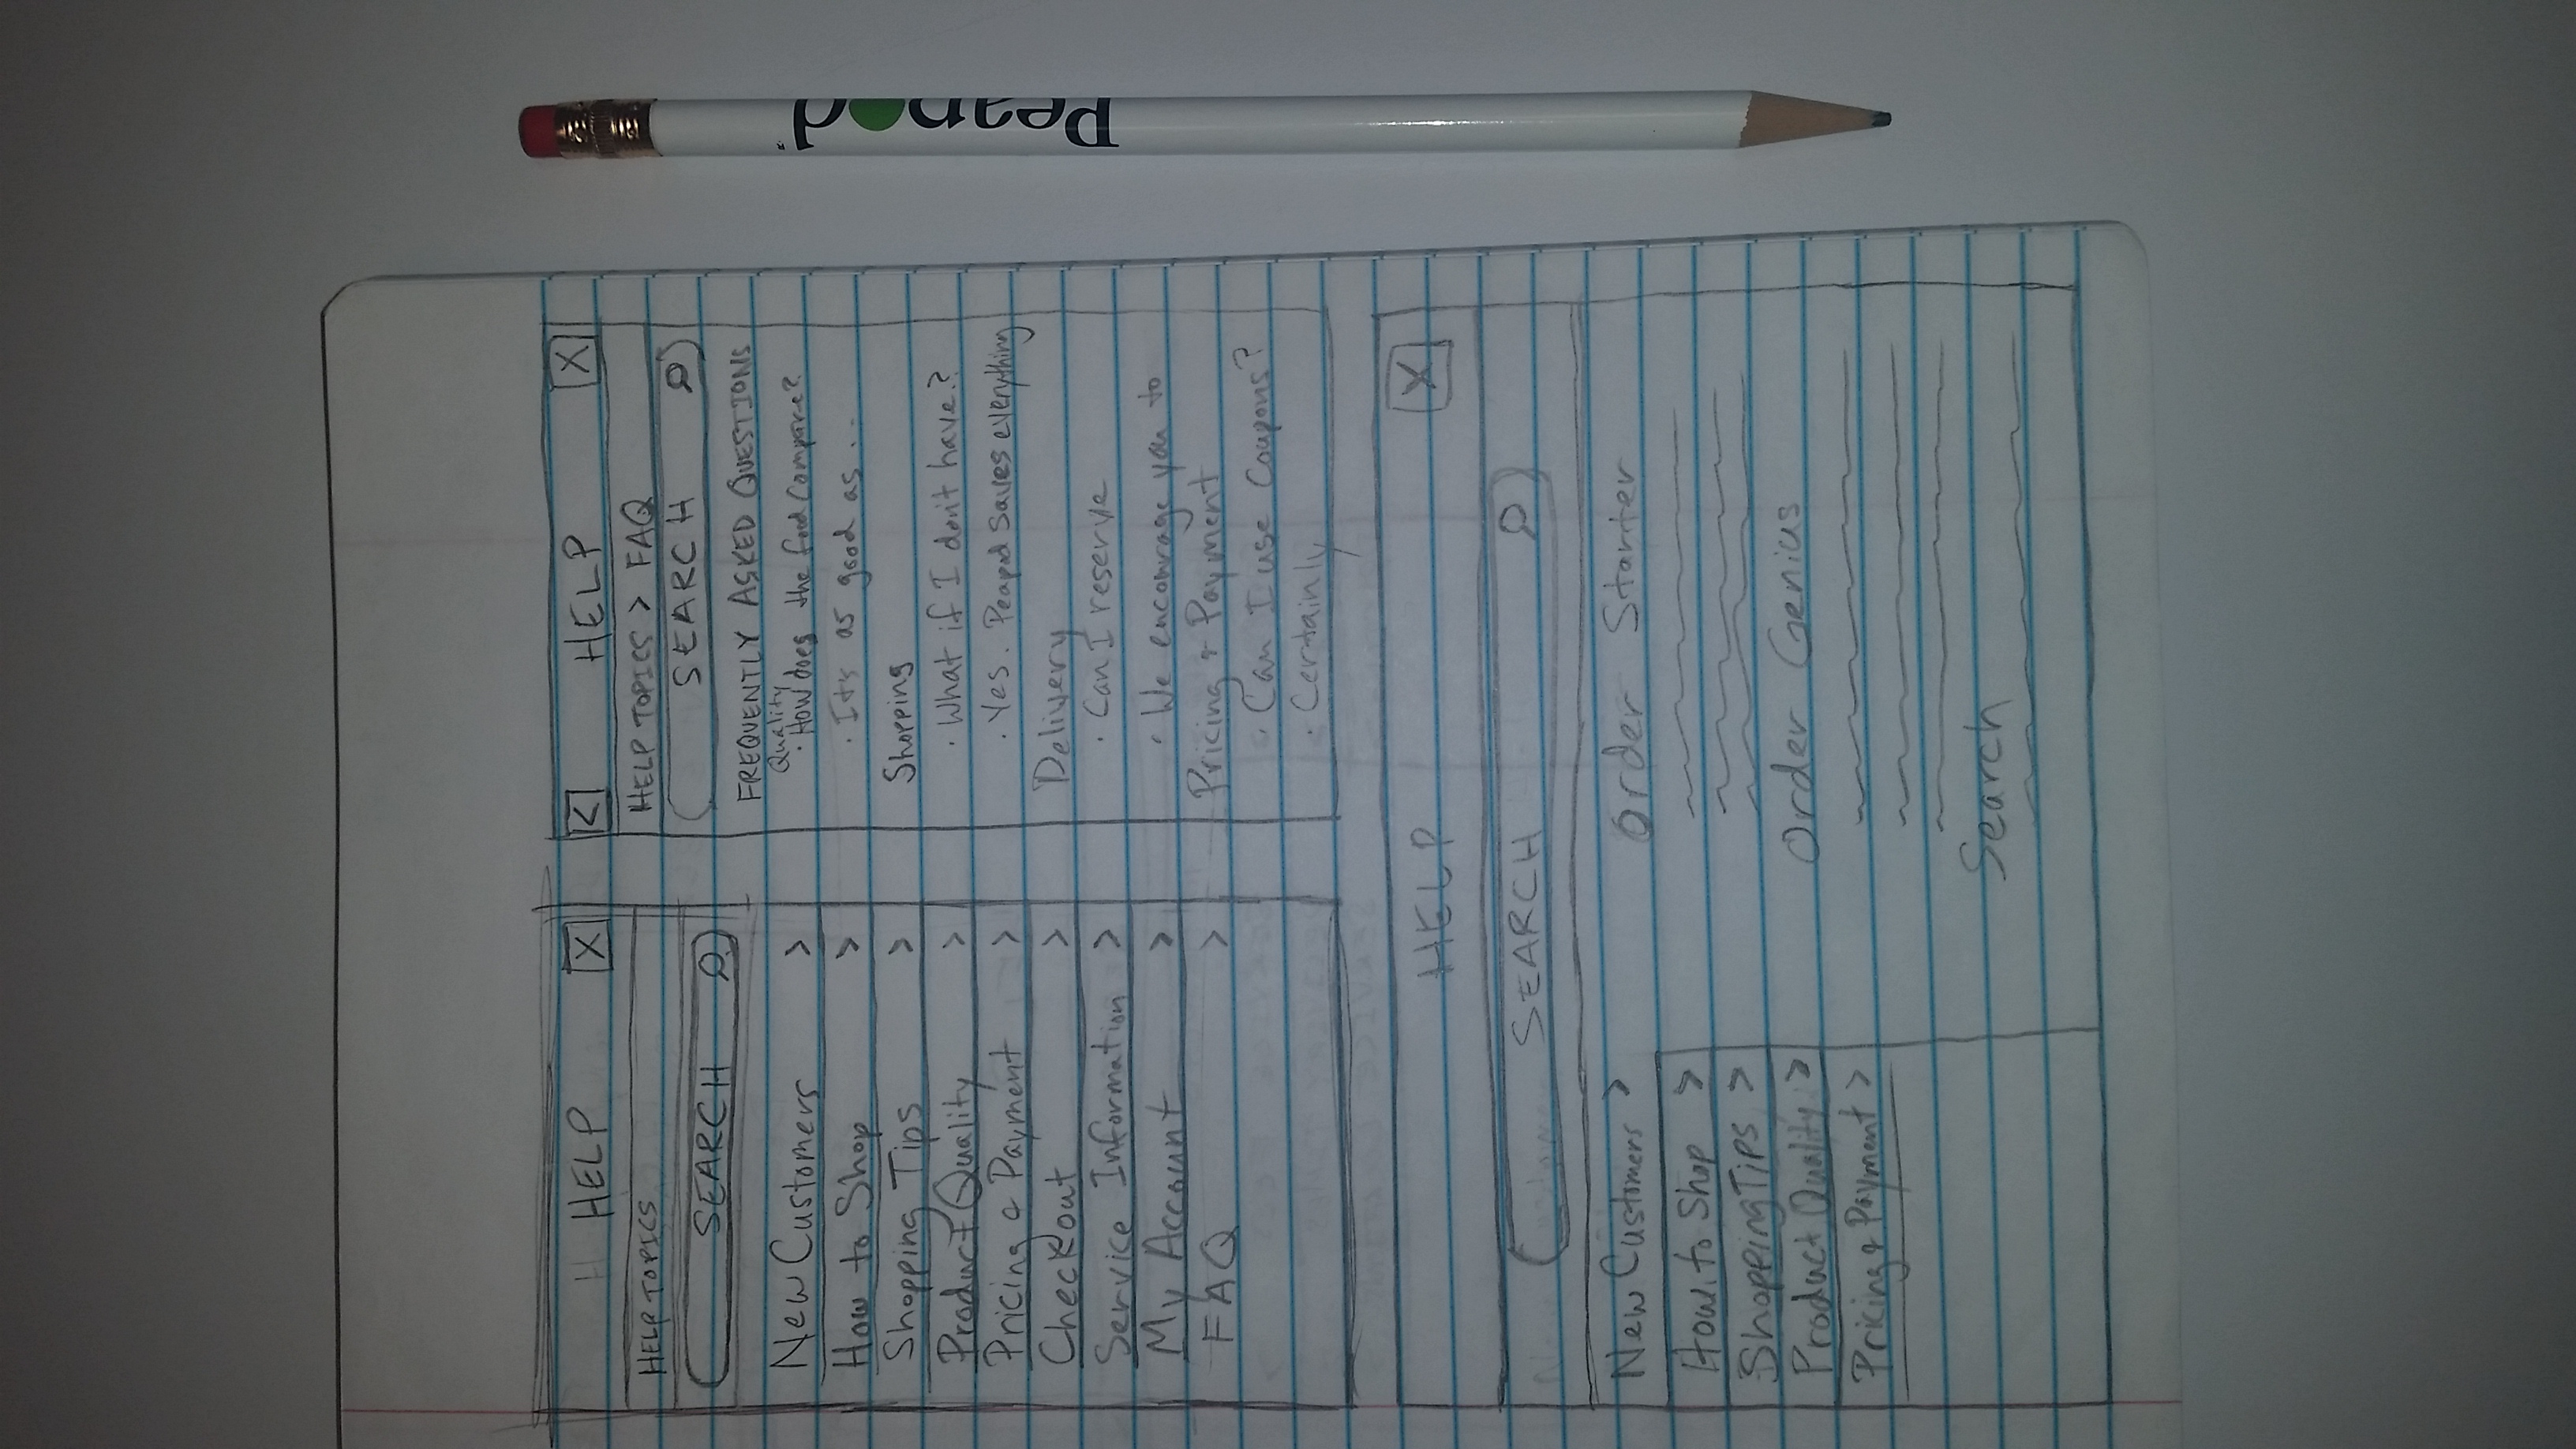 HELP X
HELP TOPICS
SEARCH
New Customers >
How to Shop >
Shopping Tips >
Product Quality >
Pricing & Payment >
Checkout >
Service Information >
My Account >
FAQ >
< HELP X
HELP TOPICS > FAQ
SEARCH
FREQUENTLY ASKED QUESTIONS
Quality
· How does the food compare?
· It's as good as...
Shopping
· What if I don't have?
· Yes. Peapod saves everything
Delivery
· Can I reserve
· We encourage you to
Pricing & Payment
· Can I use Coupons?
· Certainly
HELP X
SEARCH
New Customers >
How to Shop >
Shopping Tips >
Product Quality >
Pricing & Payment >
Order Starter
Order Genius
Search
Peapod